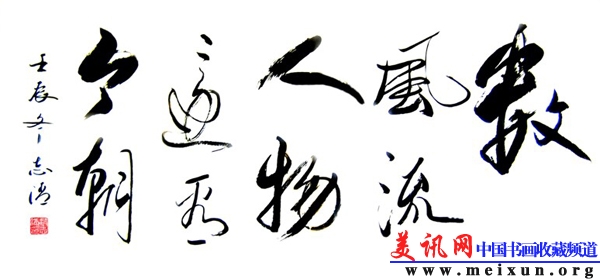 數
風流
人物
還看
今朝
壬辰冬志清
美讯网中国书画收藏频道
www.meixun.org